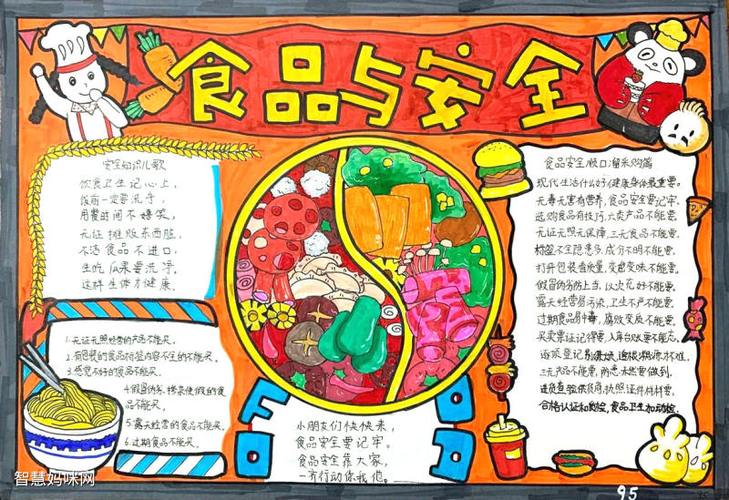 食品与安全
安全知识儿歌
饮食卫生记心上,
饭前一定要洗手,
用餐时间不嬉笑,
无证摊贩东西脏,
不洁食品不进口,
生吃瓜果要洗净,
这样生体才健康。
1.无证无照经营的产品不能买.
2.有包装的食品标签内容不全的不能买.
3.感觉不好的食品不能买.
4.假冒伪劣、掺杂使假的食品不能买.
5.露天经营的食品不能买.
6.过期食品不能买.
小朋友们快快来,
食品安全要记牢。
食品安全靠大家,
一言行动你我他。
食品安全顺口溜采购篇
现代生活什么好,健康身体最重要。
无毒无害有营养,食品安全要记牢。
选购食品有技巧,六类产品不能要。
无证无照无保障,三无食品不能要。
标签不全隐患多,成分不明不能要。
打开包装查质量,变质变味不能要。
假冒伪劣防上当,以次充好不能要。
露天经营易污染,卫生不严不能要。
过期食品易中毒,腐败变质不能要。
买卖票证记得要,入库台账要不能忘。
三无产品不能要,
合格认证和购检,食品卫生和动检.
FOOD
95
智慧妈咪网